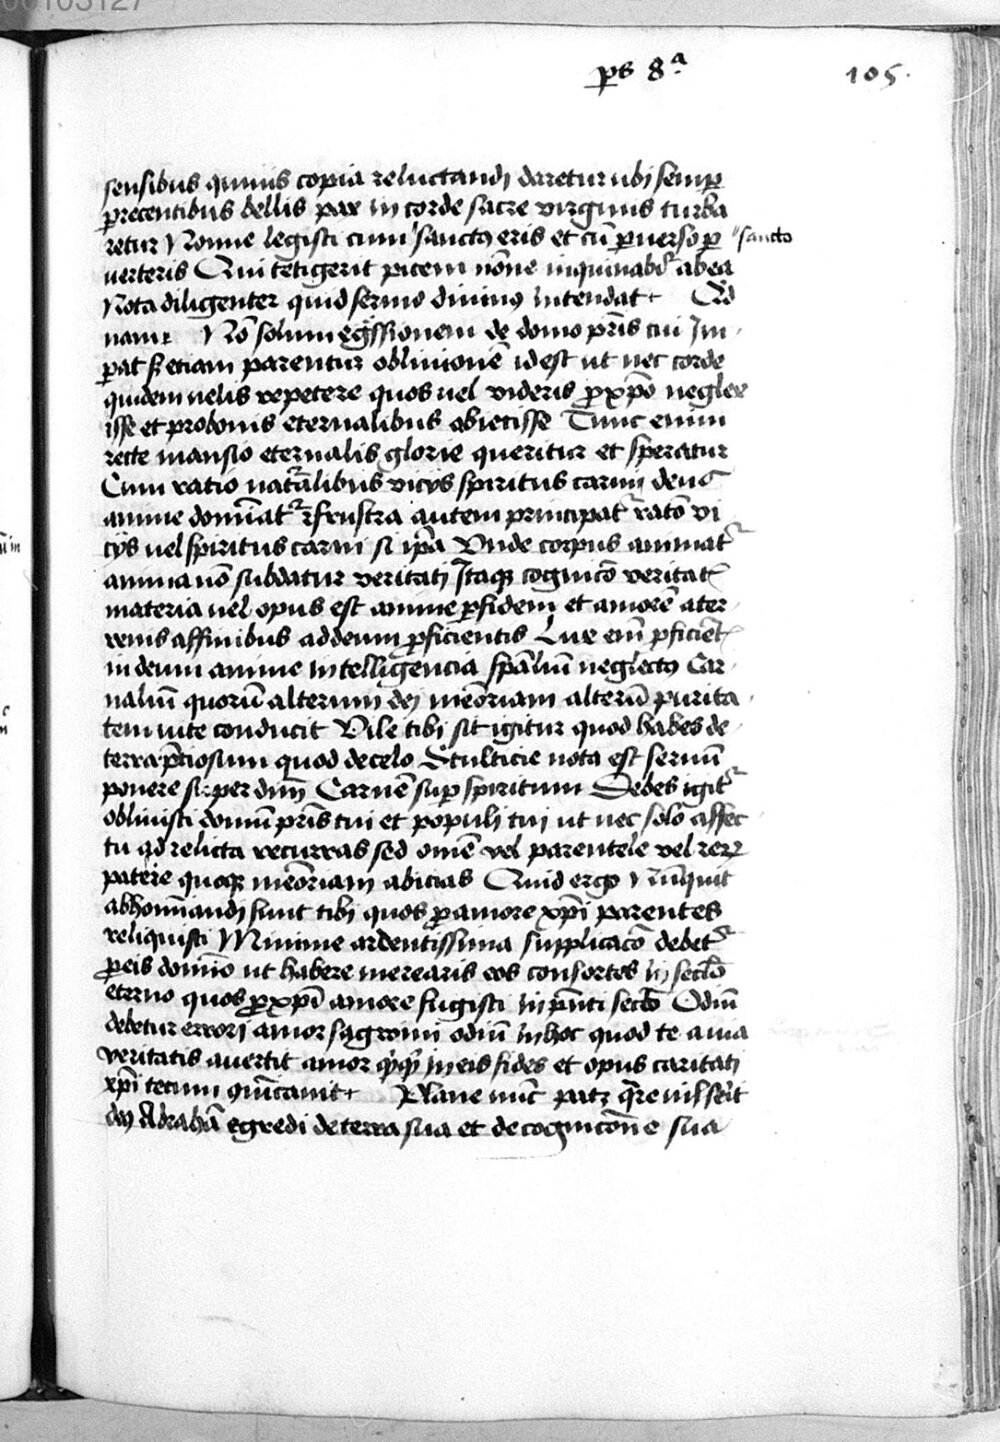 00103127
ps 8ª 105.
sensibus quinis copia reluctandi daretur ubi semp
precentibus bellis pax in corde sacre virginis turba
retur Nonne legisti cum sancto eris et cū pverso p "sancto
verteris Qui tetigerit picem nōne inquinabr̄ ab ea
Nota diligenter quid sermo divinus intendat Qd
nam Nō solum egressionem de domo pr̄is tui Im
pat s; etiam parentum oblivionē id est ut nec corde
quidem velis repetere quos vel videris p xp̄o neglex
isse et pro bonis eternalibus abiecisse Tunc enim
recte mansio eternalis glorie queritur et speratur
Cum ratio naturalibus vicijs spiritus carni deus
anime dominat Frustra autem principat ratō vi
cijs vel spiritus carni si ip̄a Unde corpus animat
anima nō subdatur veritati Itaque cognicō veritat
materia vel opus est anime p fidem et amorē a ter
renis affinibus ad deum proficientis Due em̄ pficiēt
in deum anime intelligencia sp̄aliū neglectus Car
naliū quorū alterum dei memoriam alterū purita
tem vite conducit Vile tibi sit igitur quod habes de
terra p̄ciosum quod de celo Stulticie nota est servum
ponere super dn̄m Carnē sup spiritum Debes igit
oblivisci domū pr̄is tui et populi tui ut nec solo affec
tu ad relicta recurras sed omē vel parentele vel rerum
paterne quoque memoriam abicias Quid ergo inquit
abhominandi sunt tibi quos p amore xp̄i parentes
reliquisti Minime ardentissima supplicacō debet
p eis domino ut habere merearis eos consortes in seculo
eterno quos p xp̄i amore fugisti in p̄nti seculo Odiū
debetur errori amor sagemini odiū in hoc quod te a via
veritatis avertit amor quicquid in eis fides et opus caritati
xp̄i tecum cōicavit Plane nunc patz quare iusserit
deus Abrahā egredi de terra sua et de cognicōne sua